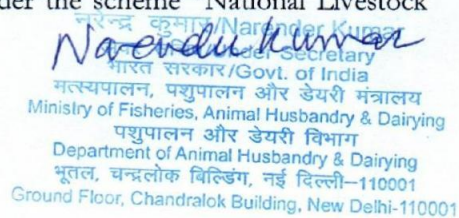 der the scheme "National Livestock
नरेन्द्र कुमार/Narender Kumar
Narender Kumar
Secretary
भारत सरकार/Govt. of India
मत्स्यपालन, पशुपालन और डेयरी मंत्रालय
Ministry of Fisheries, Animal Husbandry & Dairying
पशुपालन और डेयरी विभाग
Department of Animal Husbandry & Dairying
भूतल, चन्द्रलोक बिल्डिंग, नई दिल्ली–110001
Ground Floor, Chandralok Building, New Delhi-110001